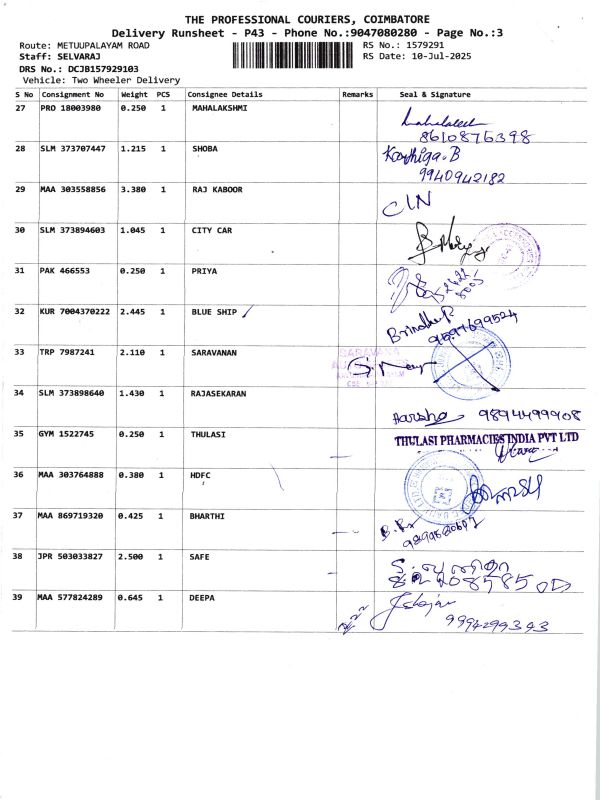 THE PROFESSIONAL COURIERS, COIMBATORE
Delivery Runsheet - P43 - Phone No.:9047080280 - Page No.:3
Route: METUUPALAYAM ROAD
RS No.: 1579291
Staff: SELVARAJ
RS Date: 10-Jul-2025
DRS No.: DCJB157929103
Vehicle: Two Wheeler Delivery
S No Consignment No Weight PCS Consignee Details Remarks Seal & Signature
27 PRO 18003980 0.250 1 MAHALAKSHMI
8610876398
28 SLM 373707447 1.215 1 SHOBA Karthiga.B
9940942182
29 MAA 303558856 3.380 1 RAJ KABOOR
30 SLM 373894603 1.045 1 CITY CAR
31 PAK 466553 0.250 1 PRIYA
32 KUR 7004370222 2.445 1 BLUE SHIP
Brindha P.
9597699524
33 TRP 7987241 2.110 1 SARAVANAN
34 SLM 373898640 1.430 1 RAJASEKARAN
Harsha 9894499908
35 GYM 1522745 0.250 1 THULASI THULASI PHARMACIES INDIA PVT LTD
36 MAA 303764888 0.380 1 HDFC
37 MAA 869719320 0.425 1 BHARTHI
38 JPR 503033827 2.500 1 SAFE
39 MAA 577824289 0.645 1 DEEPA
9994299393